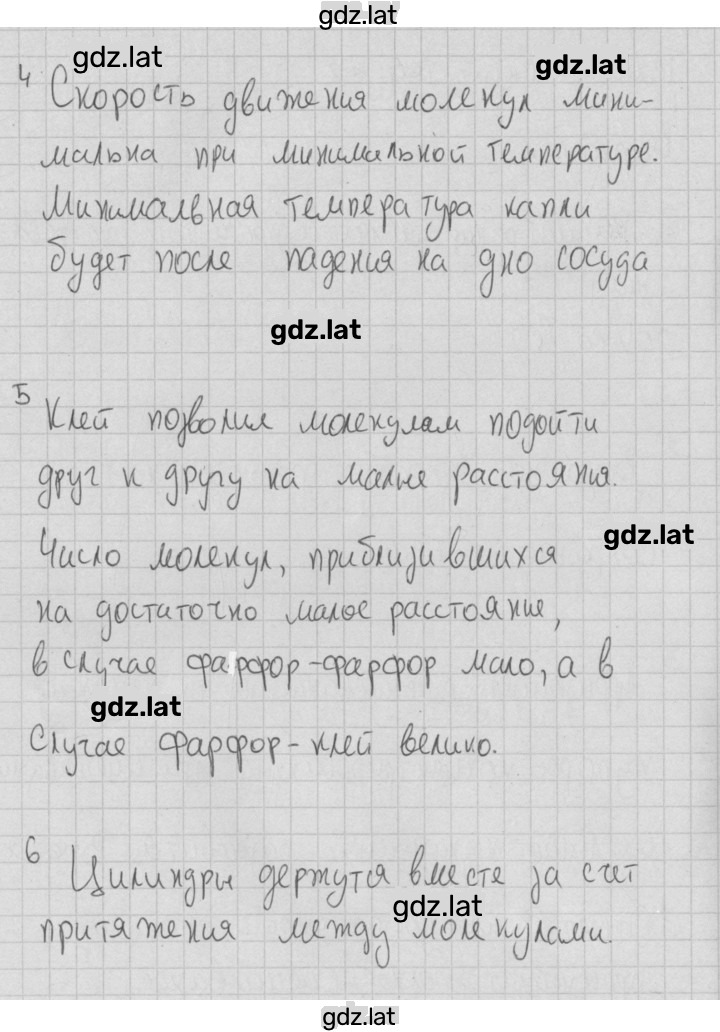 gdz.lat
gdz.lat
gdz.lat
4 Скорость движения молекул мини-
мальна при минимальной температуре.
Минимальная температура капли
будет после падения на дно сосуда
gdz.lat
5 Клей позволил молекулам подойти
друг к другу на малые расстояния.
gdz.lat
Число молекул, приблизившихся
на достаточно малое расстояние,
в случае фарфор-фарфор мало, а в
gdz.lat
Случае фарфор-клей велико.
6 Цилиндры держутся вместе за счет
gdz.lat
притяжения между молекулами.
gdz.lat